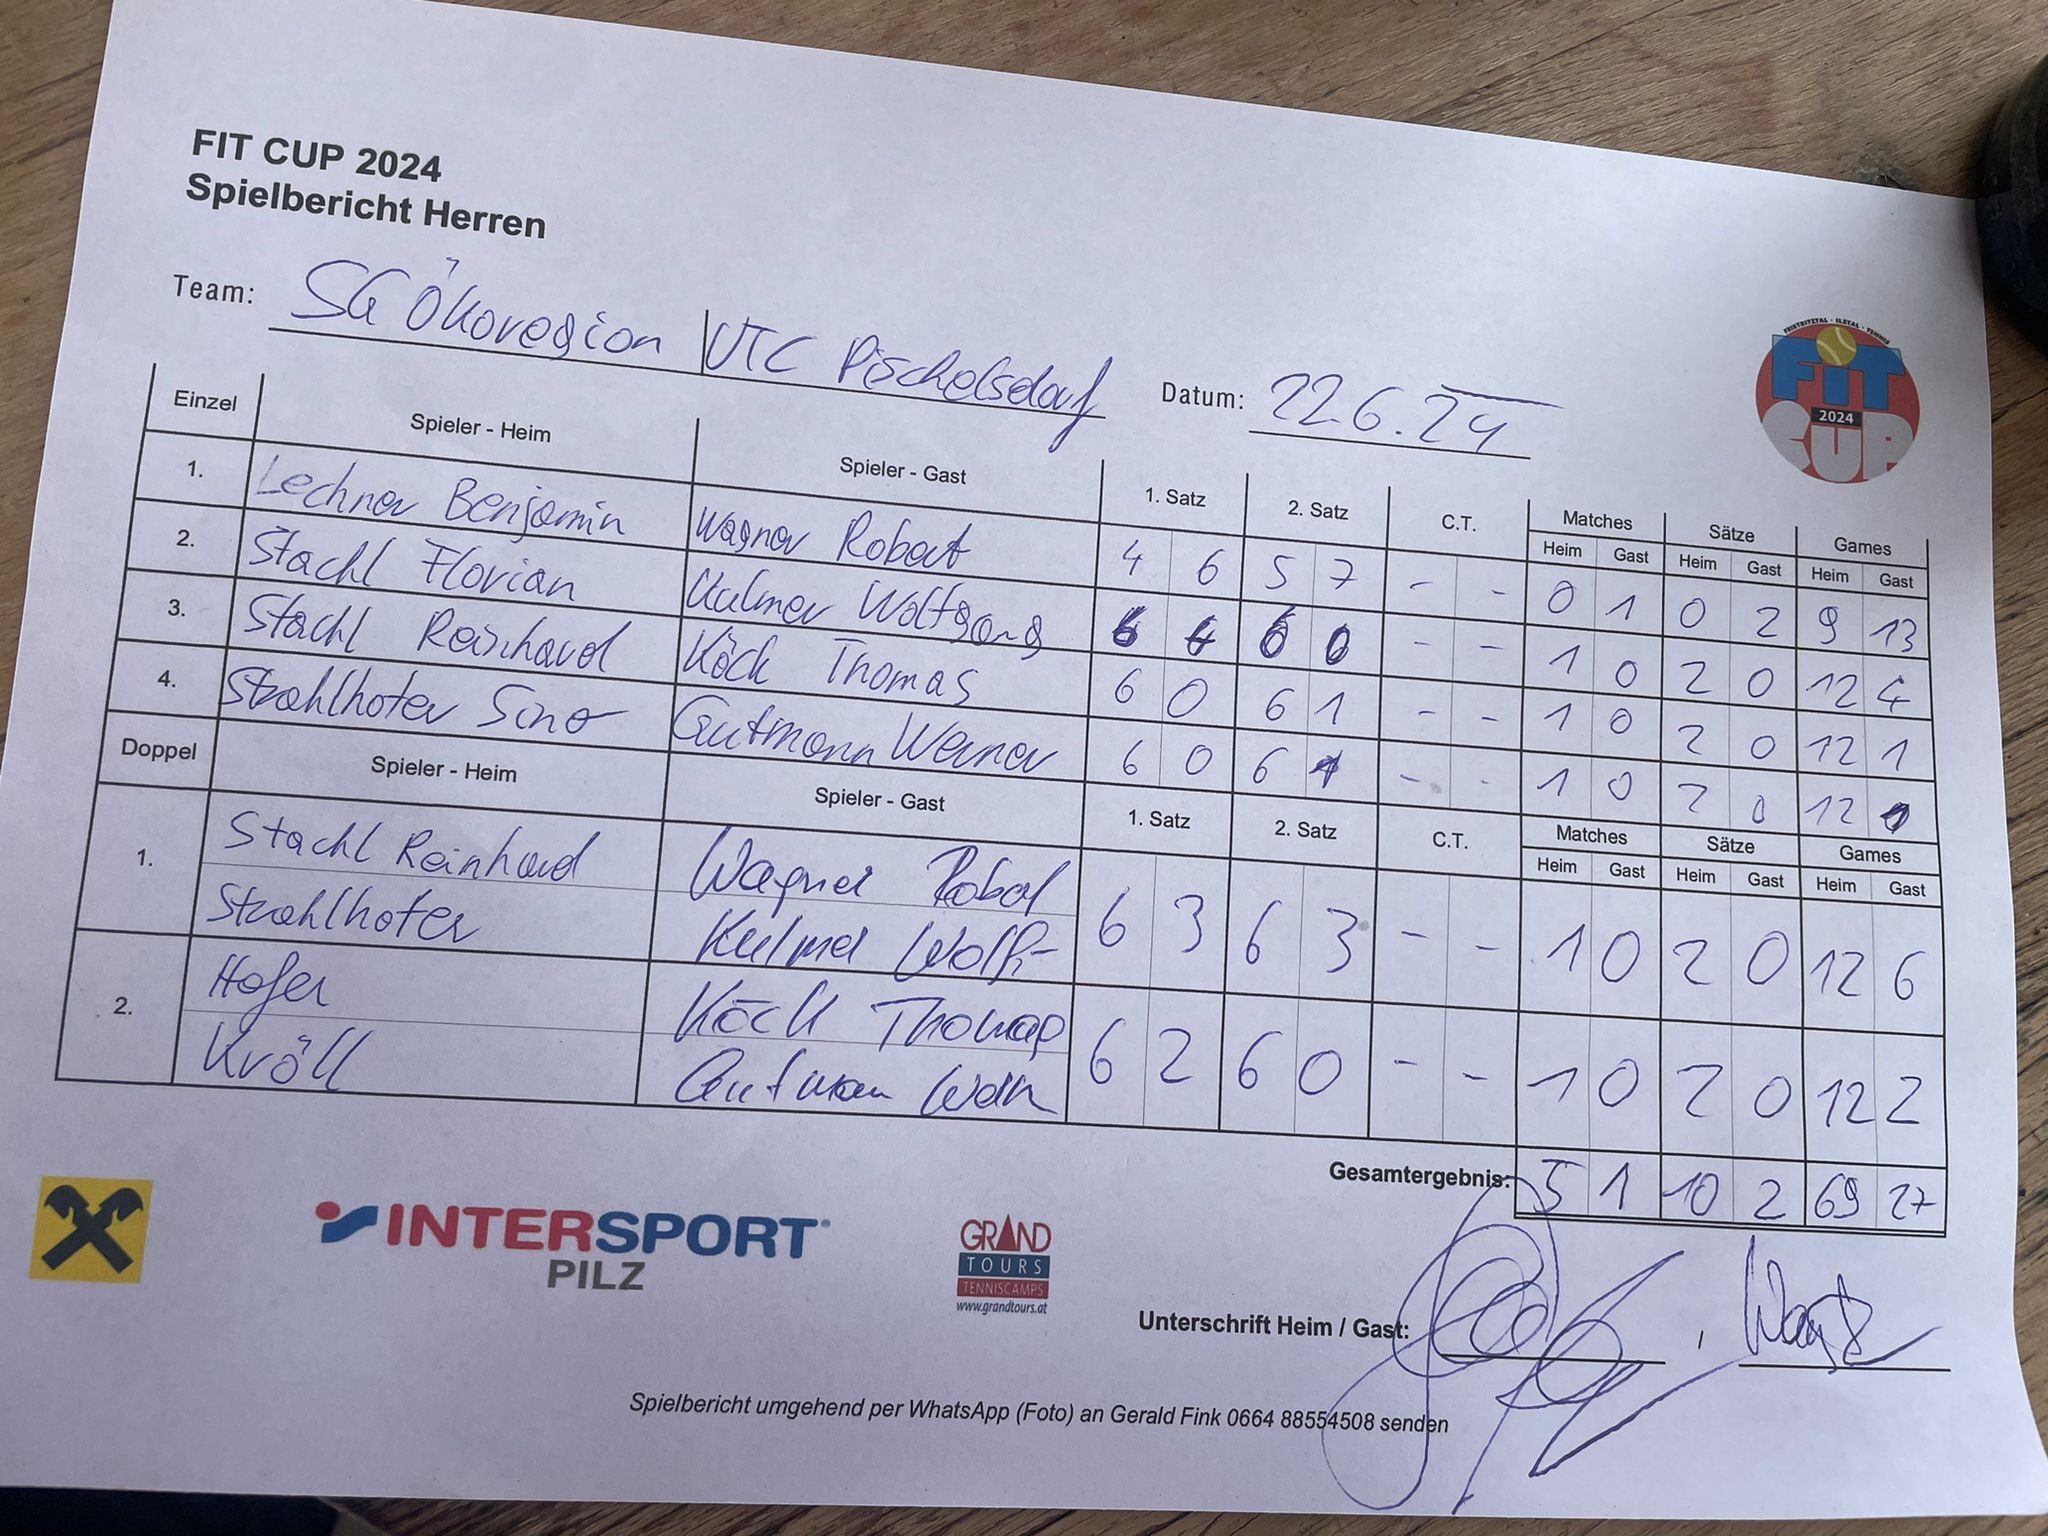 FIT CUP 2024
Spielbericht Herren
Team: SG Ökoregion | UTC Pischelsdorf Datum: 22.6.24
FEISTRITZTAL - ILZTAL - TENNIS
FIT
2024
CUP
Einzel Spieler - Heim Spieler - Gast 1. Satz 2. Satz C.T. Matches Sätze Games
Heim Gast Heim Gast Heim Gast
1. Lechner Benjamin Wagner Robert 4 6 5 7 - - 0 1 0 2 9 13
2. Stachl Florian Kulmer Wolfgang 6 4 6 0 - - 1 0 2 0 12 4
3. Stachl Reinhard Köck Thomas 6 0 6 1 - - 1 0 2 0 12 1
4. Strahlhofer Gutmann Werner 6 0 6 1 - - 1 0 2 0 12 1
Doppel Spieler - Heim Spieler - Gast 1. Satz 2. Satz C.T. Matches Sätze Games
Heim Gast Heim Gast Heim Gast
1. Stachl Reinhard Wagner Robert
Strahlhofer Kulmer Wolfg. 6 3 6 3 - - 1 0 2 0 12 6
2. Hofer Köck Thomas
Kröll Gutman 6 2 6 0 - - 1 0 2 0 12 2
Gesamtergebnis: 5 1 10 2 69 27
INTERSPORT
PILZ
GRAND
TOURS
TENNISCAMPS
www.grandtours.at
Unterschrift Heim / Gast: ,
Spielbericht umgehend per WhatsApp (Foto) an Gerald Fink 0664 88554508 senden